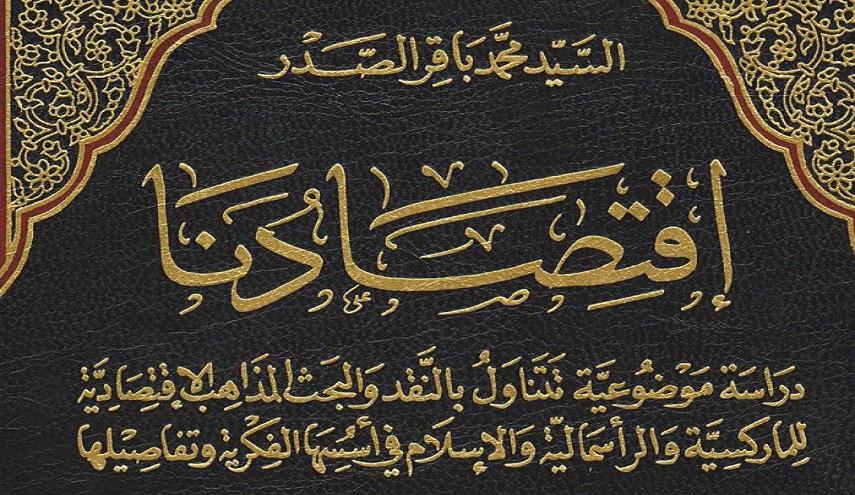 السَّيّد محمَّد بَاقِر الصَّدْر
إقتِصَادُنَا
دِرَاسَة مَوْضُوعِيَّة تَتَنَاوَلُ بالنَّقد وَالبَحث المَذاهِب الاقتِصَاديَّة
لِلماركسيَّة وَالرأسماليَّة وَالإسلام في أسُسِهَا الفِكْريَّة وَتفَاصِيْلها